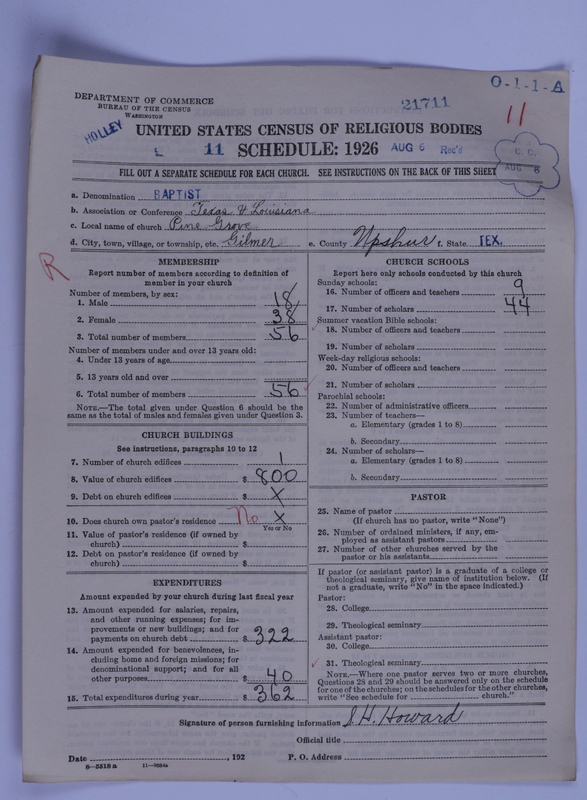 O-1-1-A
DEPARTMENT OF COMMERCE
BUREAU OF THE CENSUS
WASHINGTON
21711
11
HOLLEY
UNITED STATES CENSUS OF RELIGIOUS BODIES
11 SCHEDULE: 1926 AUG 6 Rec'd
C. O.
AUG 6
FILL OUT A SEPARATE SCHEDULE FOR EACH CHURCH. SEE INSTRUCTIONS ON THE BACK OF THIS SHEET
a. Denomination BAPTIST
b. Association or Conference Texas & Louisiana
c. Local name of church Pine Grove
d. City, town, village, or township, etc. Gilmer e. County Upshur f. State TEX.
R
MEMBERSHIP
Report number of members according to definition of
member in your church
Number of members, by sex:
1. Male 18
2. Female 38
3. Total number of members 56
Number of members under and over 13 years old:
4. Under 13 years of age
5. 13 years old and over
6. Total number of members 56
NOTE.—The total given under Question 6 should be the
same as the total of males and females given under Question 3.
CHURCH BUILDINGS
See instructions, paragraphs 10 to 12
7. Number of church edifices 1
8. Value of church edifices $ 800
9. Debt on church edifices $ X
10. Does church own pastor's residence No X
Yes or No
11. Value of pastor's residence (if owned by
church) $
12. Debt on pastor's residence (if owned by
church) $
EXPENDITURES
Amount expended by your church during last fiscal year
13. Amount expended for salaries, repairs,
and other running expenses; for im-
provements or new buildings; and for
payments on church debt $ 322
14. Amount expended for benevolences, in-
cluding home and foreign missions; for
denominational support; and for all
other purposes $ 40
15. Total expenditures during year $ 362
CHURCH SCHOOLS
Report here only schools conducted by this church
Sunday schools:
16. Number of officers and teachers 9
17. Number of scholars 44
Summer vacation Bible schools:
18. Number of officers and teachers
19. Number of scholars
Week-day religious schools:
20. Number of officers and teachers
21. Number of scholars
Parochial schools:
22. Number of administrative officers
23. Number of teachers—
a. Elementary (grades 1 to 8)
b. Secondary
24. Number of scholars—
a. Elementary (grades 1 to 8)
b. Secondary
PASTOR
25. Name of pastor
(If church has no pastor, write "None")
26. Number of ordained ministers, if any, em-
ployed as assistant pastors
27. Number of other churches served by the
pastor or his assistants
If pastor (or assistant pastor) is a graduate of a college or
theological seminary, give name of institution below. (If
not a graduate, write "No" in the space indicated.)
Pastor:
28. College
29. Theological seminary
Assistant pastor:
30. College
31. Theological seminary
NOTE.—Where one pastor serves two or more churches,
Questions 28 and 29 should be answered only on the schedule
for one of the churches; on the schedules for the other churches,
write "See schedule for church."
Signature of person furnishing information J. H. Howard
Official title
Date , 192 P. O. Address
8—3318 a 11—9884a